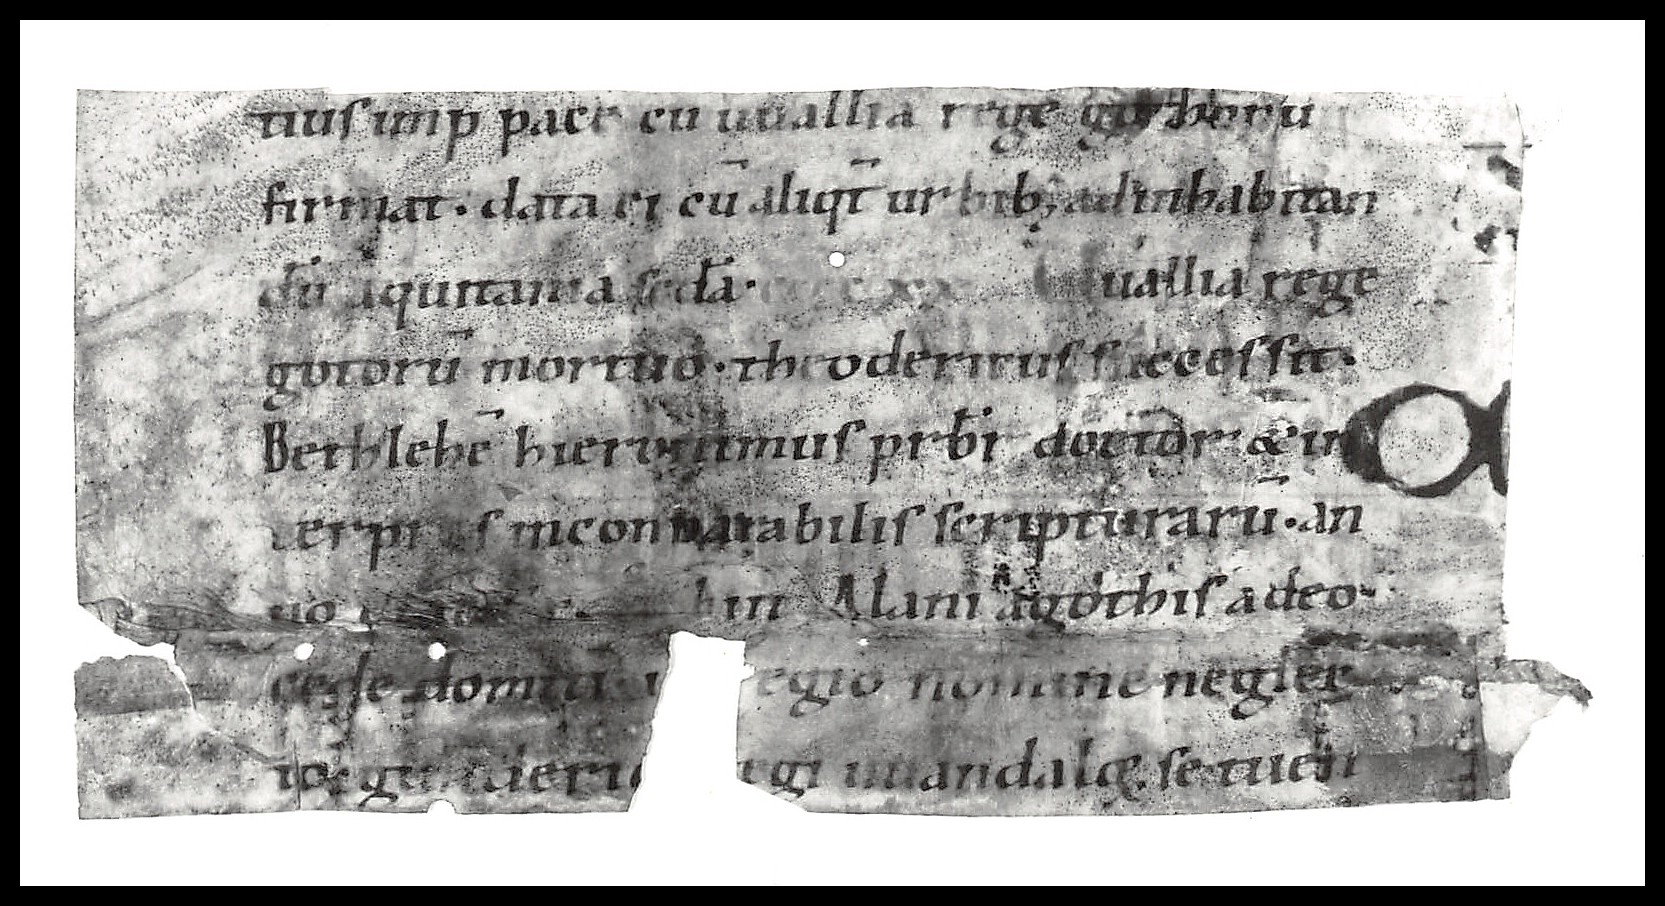 tiuſ imp̄ pace cū uuallia rege gothorū
firmat · data ei cū aliq̄t urbib; ad inhabitan
dū aquitania ſc̄da · uuallia rege
gotorū mortuo · theodericuſ ſucceſſit ·
Bethlehē hieronimuſ pr̄bi doctor & in
ter inconparabiliſ ſcripturarū · an
no Alani a gothiſ adeo
cede domiti regio nomine neglec
to gunderico regi uuandaloꝝ ſe tuen